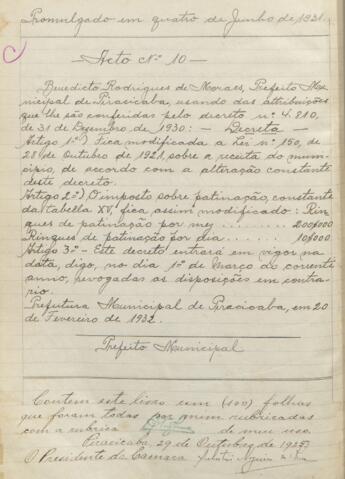 Promulgado em quatro de Junho de 1931.
Acto Nº 10
Benedicto Rodrigues de Moraes, Prefeito Mu-
nicipal de Piracicaba, usando das attribuições
que lhe são conferidas pelo decreto nº 4.810,
de 31 de Dezembro de 1930: — Decreta —
Artigo 1º) Fica modificada a Lei nº 150, de
28 de Outubro de 1921, sobre a receita do muni-
cipio, de accordo com a alteração constante
deste decreto.
Artigo 2º) O imposto sobre patinação, constante
da tabella XV, fica assim modificado: Rin-
ques de patinação por mez ........ 200$000
Rinques de patinação por dia ....... 10$000
Artigo 3º - Este decreto entrará em vigor na
data, digo, no dia 1º de Março do corrente
anno, revogadas as disposições em contra-
rio.
Prefeitura Municipal de Piracicaba, em 20
de Fevereiro de 1932.
Prefeito Municipal
Contem este livro cem (100) folhas
que foram todas por mim rubricadas
com a rubrica de meu uso.
Piracicaba, 29 de Outubro de 1925
O Presidente da Camara